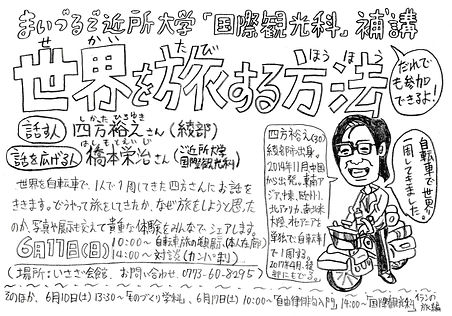 まいづるご近所大学「国際観光科」補講
せかい たび ほうほう
世界を旅する方法
だれでも参加できるよ！
しかた ひろゆき
話す人 四方裕之さん（綾部）
はしもと えいじ
話を広げる人 橋本栄治さん（ご近所大学国際観光科）
世界を自転車で、1人で1周してきた四方さんにお話を
ききます。どうやって旅をしてきたか、なぜ旅をしようと思った
のか、写真や展示を交えて貴重な体験をみんなでシェアします。
6月11日(日)
10:00～ 自転車旅の軌跡展（本人在廊）
14:00～ 対談（カンパ制）
（場所：いさざ会館、お問い合わせ 0773-60-8295）
四方裕之(30)
綾部市出身。
2014年11月中国
から出発。東南ア
ジア、中東、欧州、
北アフリカ、南北米
大陸、北アジアを
単独で自転車
で1周する。
2017年4月、綾
部にもどる。
自転車で世界
一周してきました。
6月10日(土)13:30～
6月17日(土)10:00～「自由律俳句入門」14:00～「国際観光科」イランの旅編